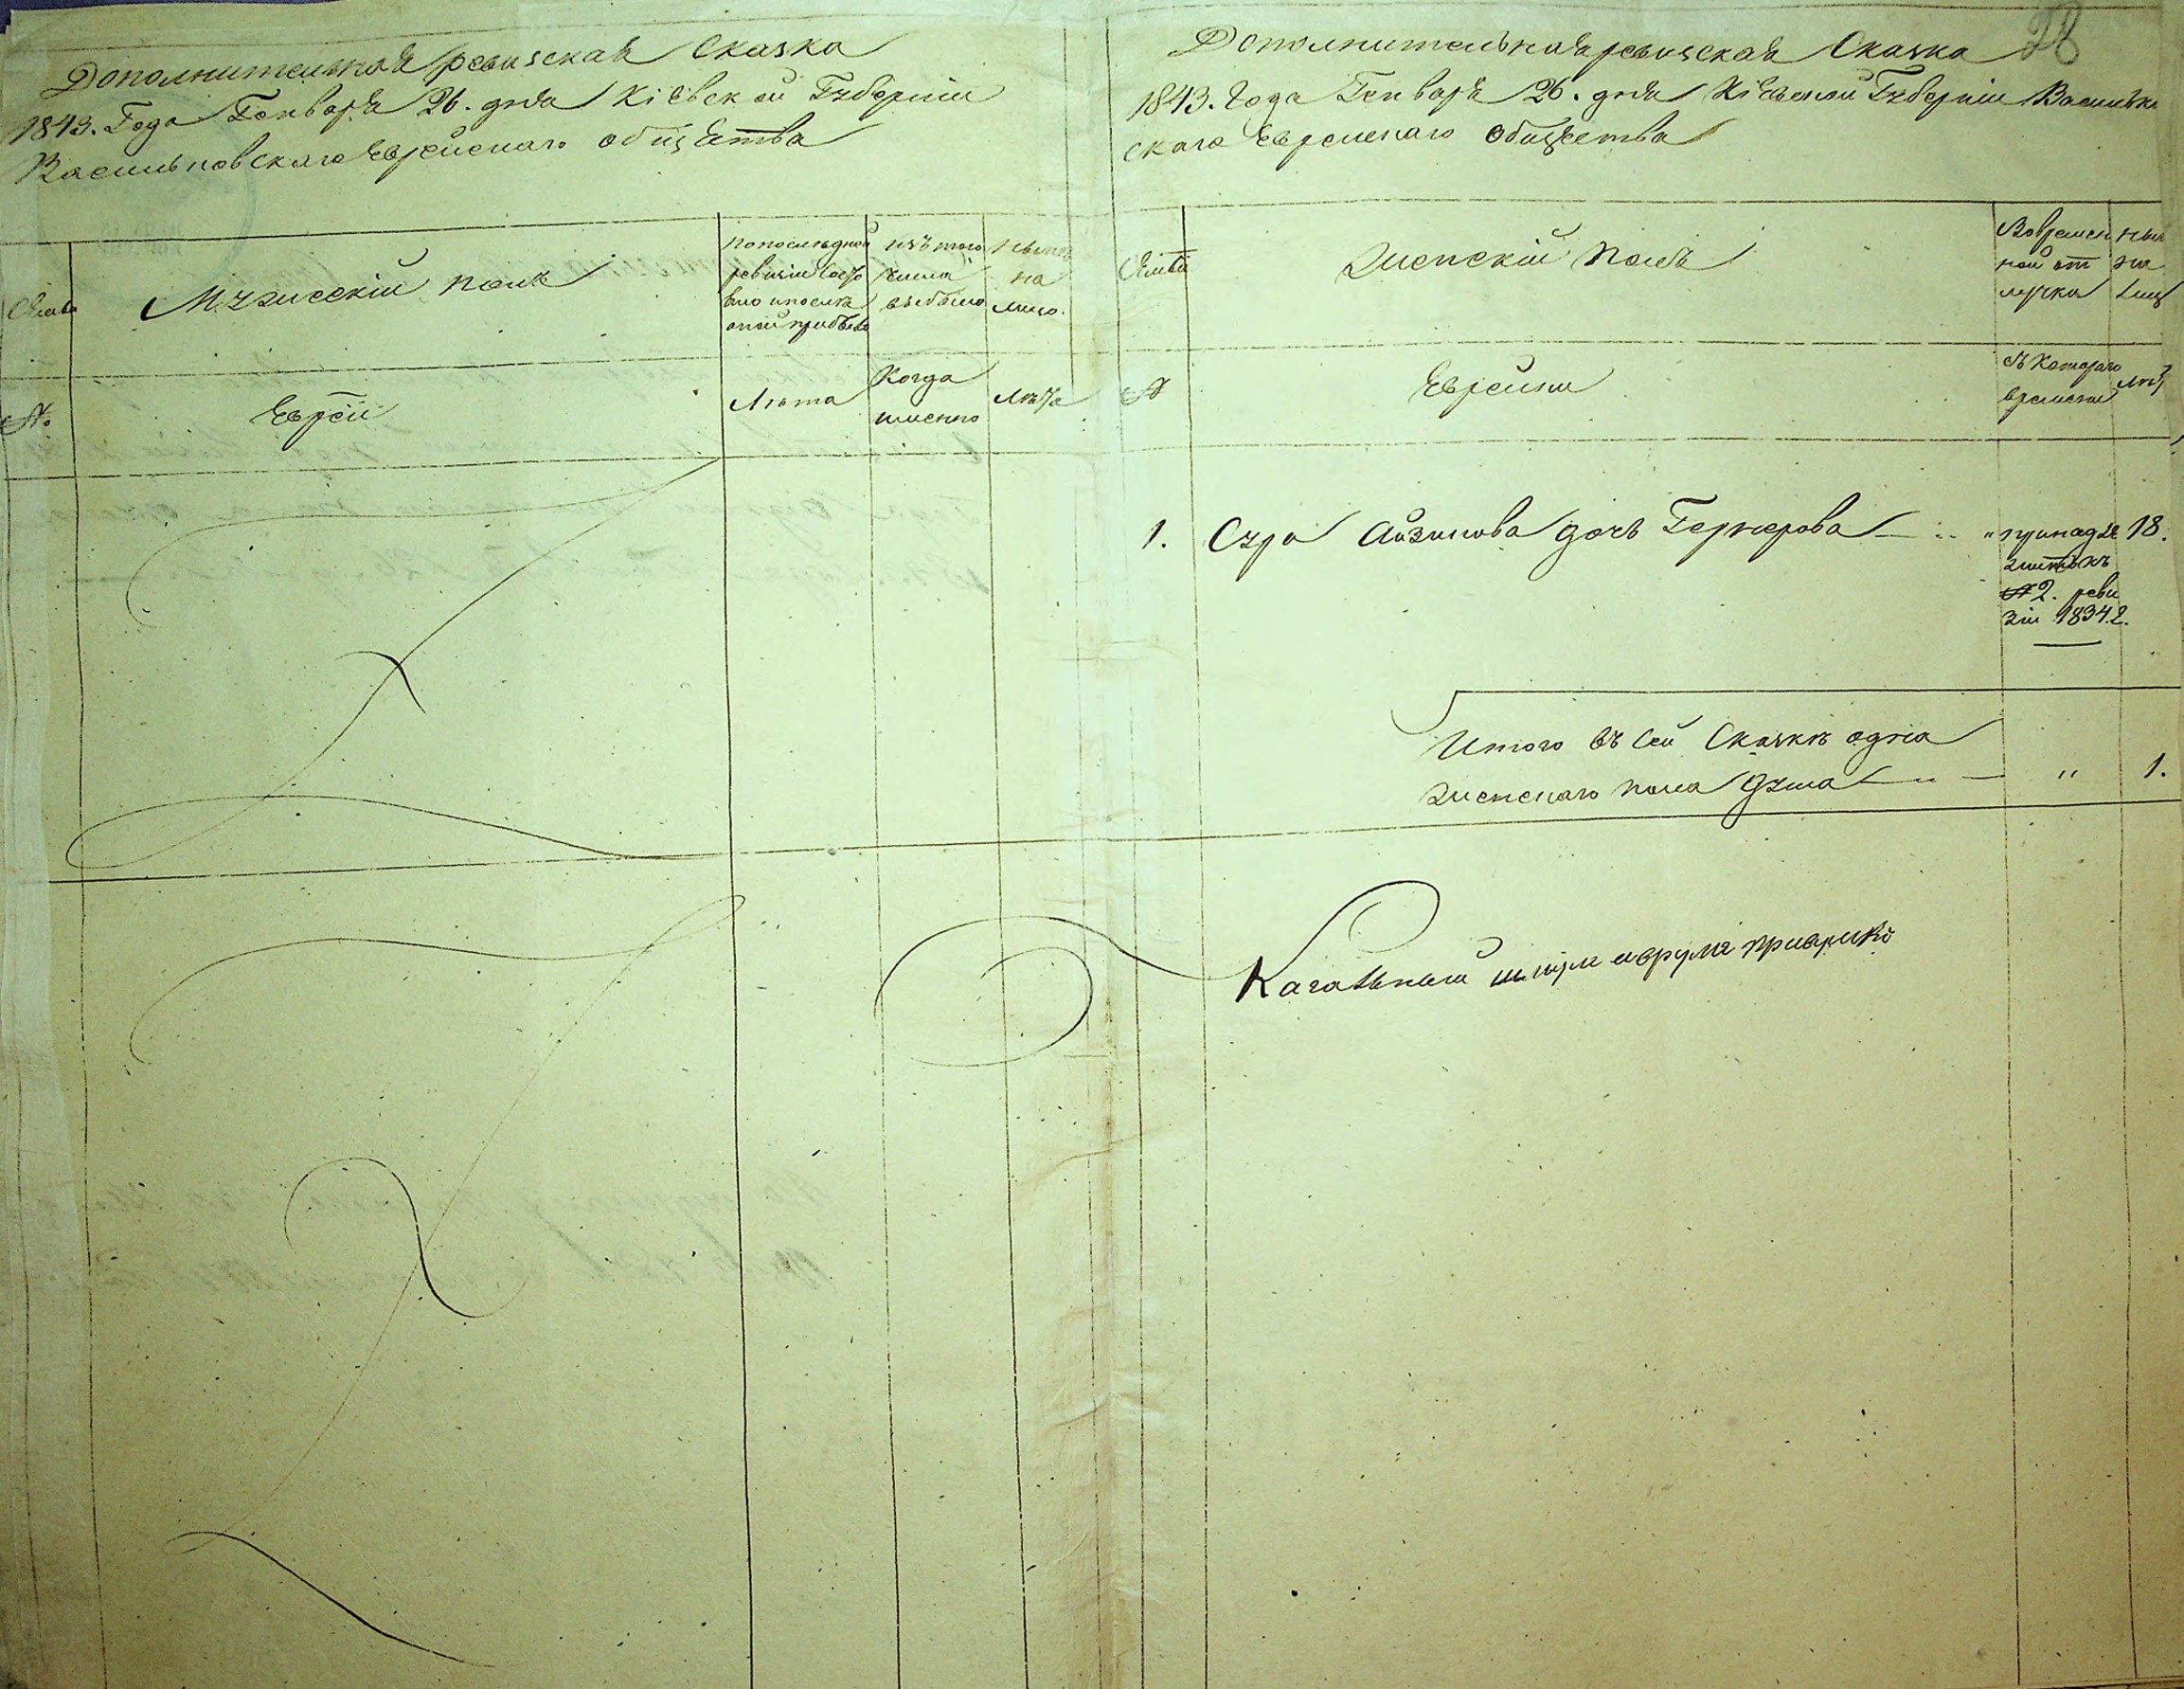 Дополнительная ревизская Сказка
1843. Года Генваря 26. дня Кіевской Губерніи
Васильковскаго Еврейскаго общества
Семьи
Мужескій полъ
По последней
ревизіи Состо
яло и после
оной прибыло
изъ того
числа
выбыло
Ныне
на
лицо.
№
Евреи
Лета
Когда
именно
Лета
28
Дополнительная ревизская Сказка
1843. Года Генваря 26. дня Кіевской Губерніи Васильков
скаго Еврейскаго общества
Семьи
Женскій полъ
Во времен
ной от
лучке
Ныне
на
лиц
№
Еврейки
Съ котораго
времени
Лета
1. Сура Айзикова дочь Гернерова — „ принадле 18.
житъ къ
№ 2. реви
зіи 1834 г.
Итого въ сей Сказке одна
женскаго пола душа — „ — „ 1.
Кагальный